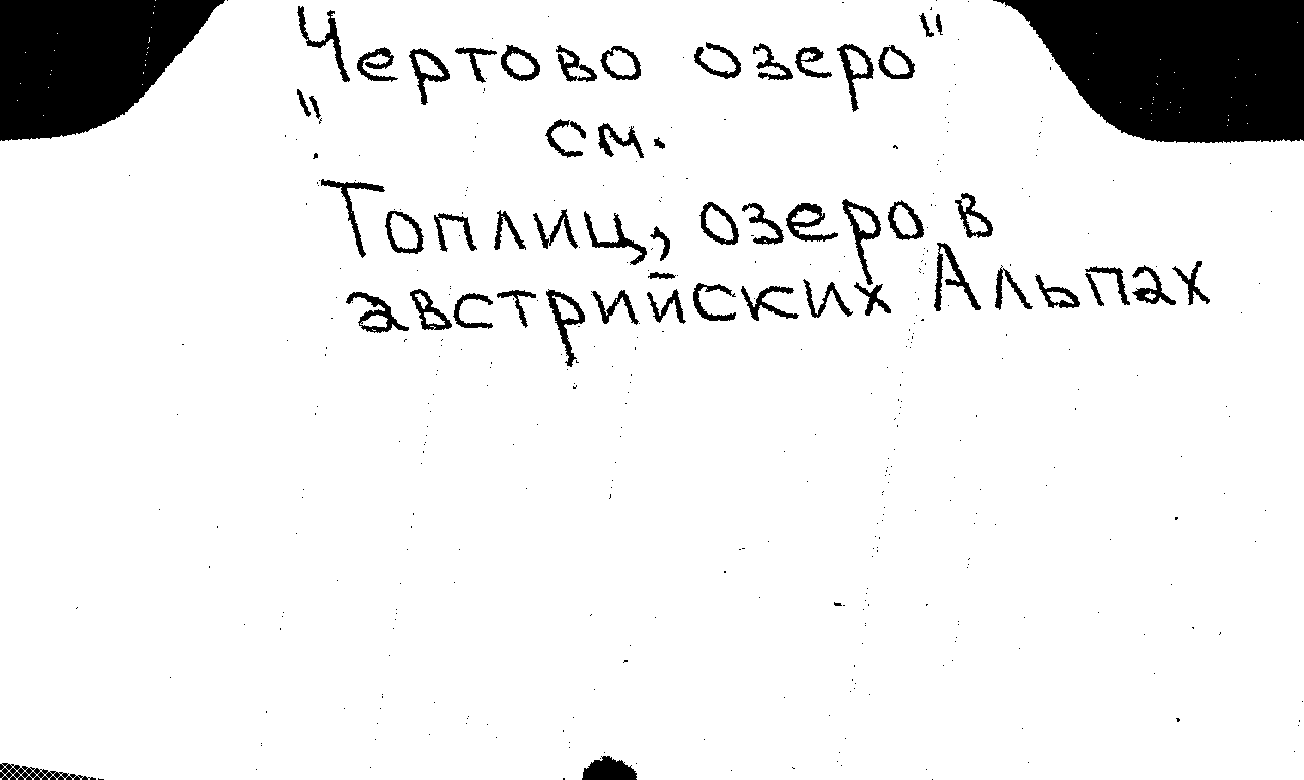 "Чертово озеро"
см.
Топлиц, озеро в
австрийских Альпах